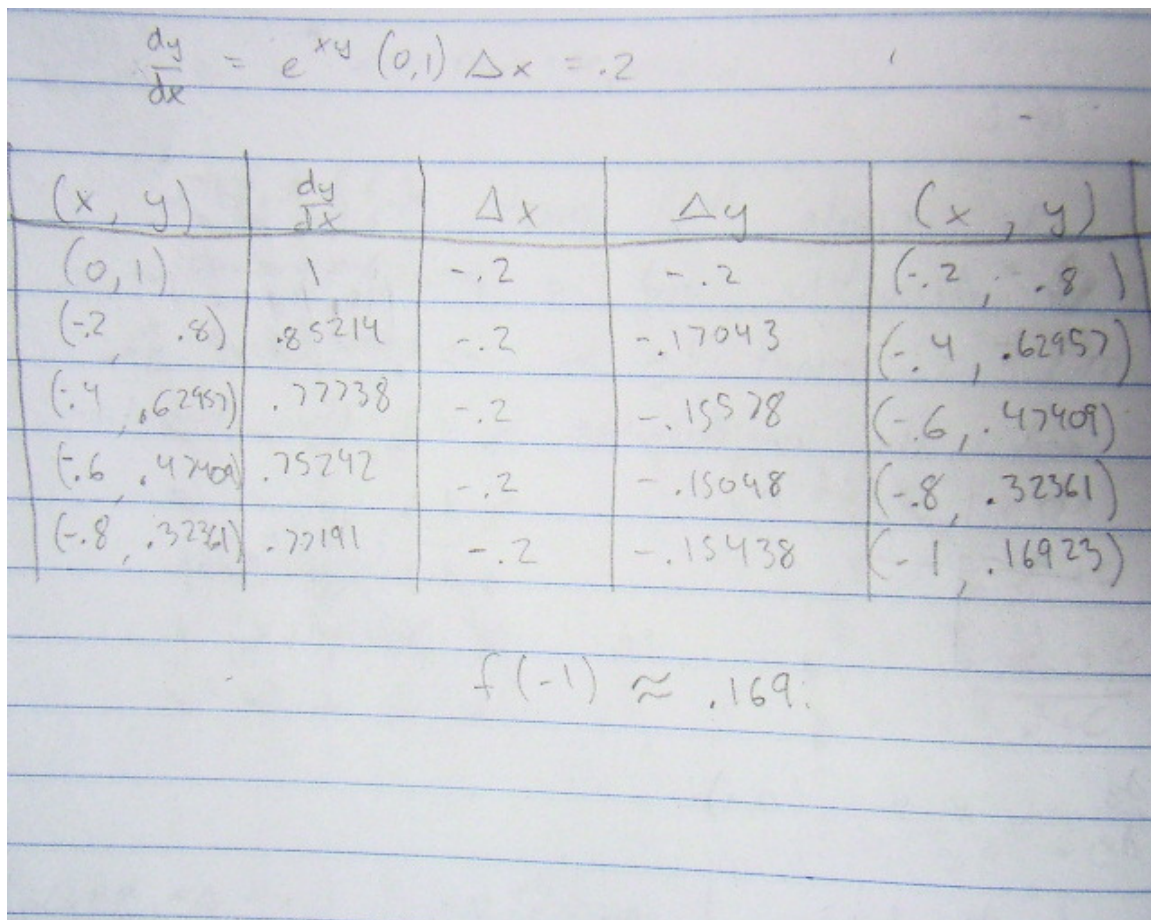 dy/dx = e^xy (0,1) Δx = .2
(x, y) dy/dx Δx Δy (x, y)
(0,1) 1 -.2 -.2 (-.2, .8)
(-.2, .8) .85214 -.2 -.17043 (-.4, .62957)
(-.4, .62957) .77738 -.2 -.15578 (-.6, .47409)
(-.6, .47409) .75242 -.2 -.15048 (-.8, .32361)
(-.8, .32361) .77191 -.2 -.15438 (-1, .16923)
f(-1) ≈ .169.